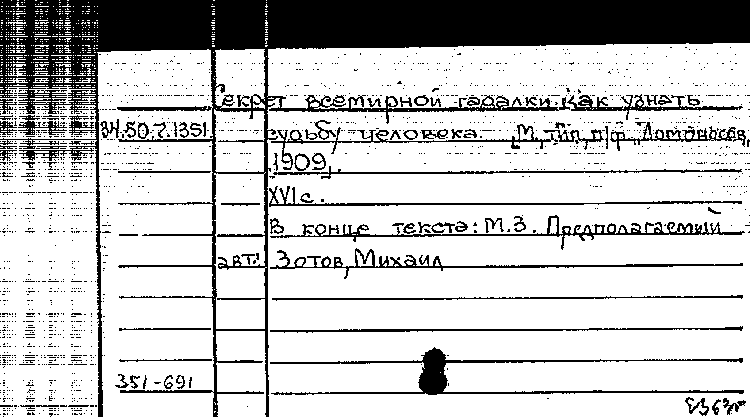 Секрет всемирной гадалки. Как узнать
34.50.7.1351 судьбу человека. [М., тип. п/ф. "Ломоносов",
1909].
XVI с.
В конце текста: М.З. Предполагаемый
авт.: Зотов, Михаил
351-691